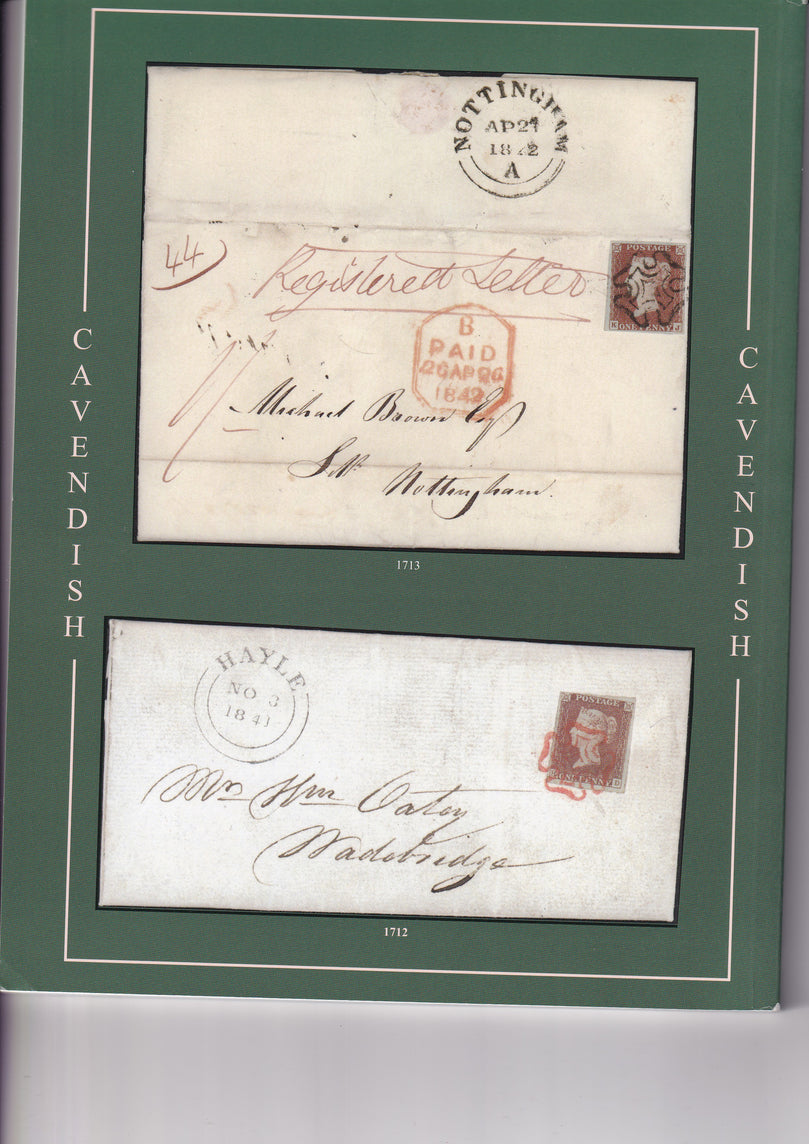 CAVENDISH
NOTTINGHAM
AP 27
1842
A
44
Registered Letter
POSTAGE
K ONE PENNY J
B
PAID
26 AP 26
1842
Michael Brown Esq
Nottingham.
1713
CAVENDISH
HAYLE
NO 3
1841
POSTAGE
ONE PENNY D
Mr Wm Oatey
Wadebridge
1712